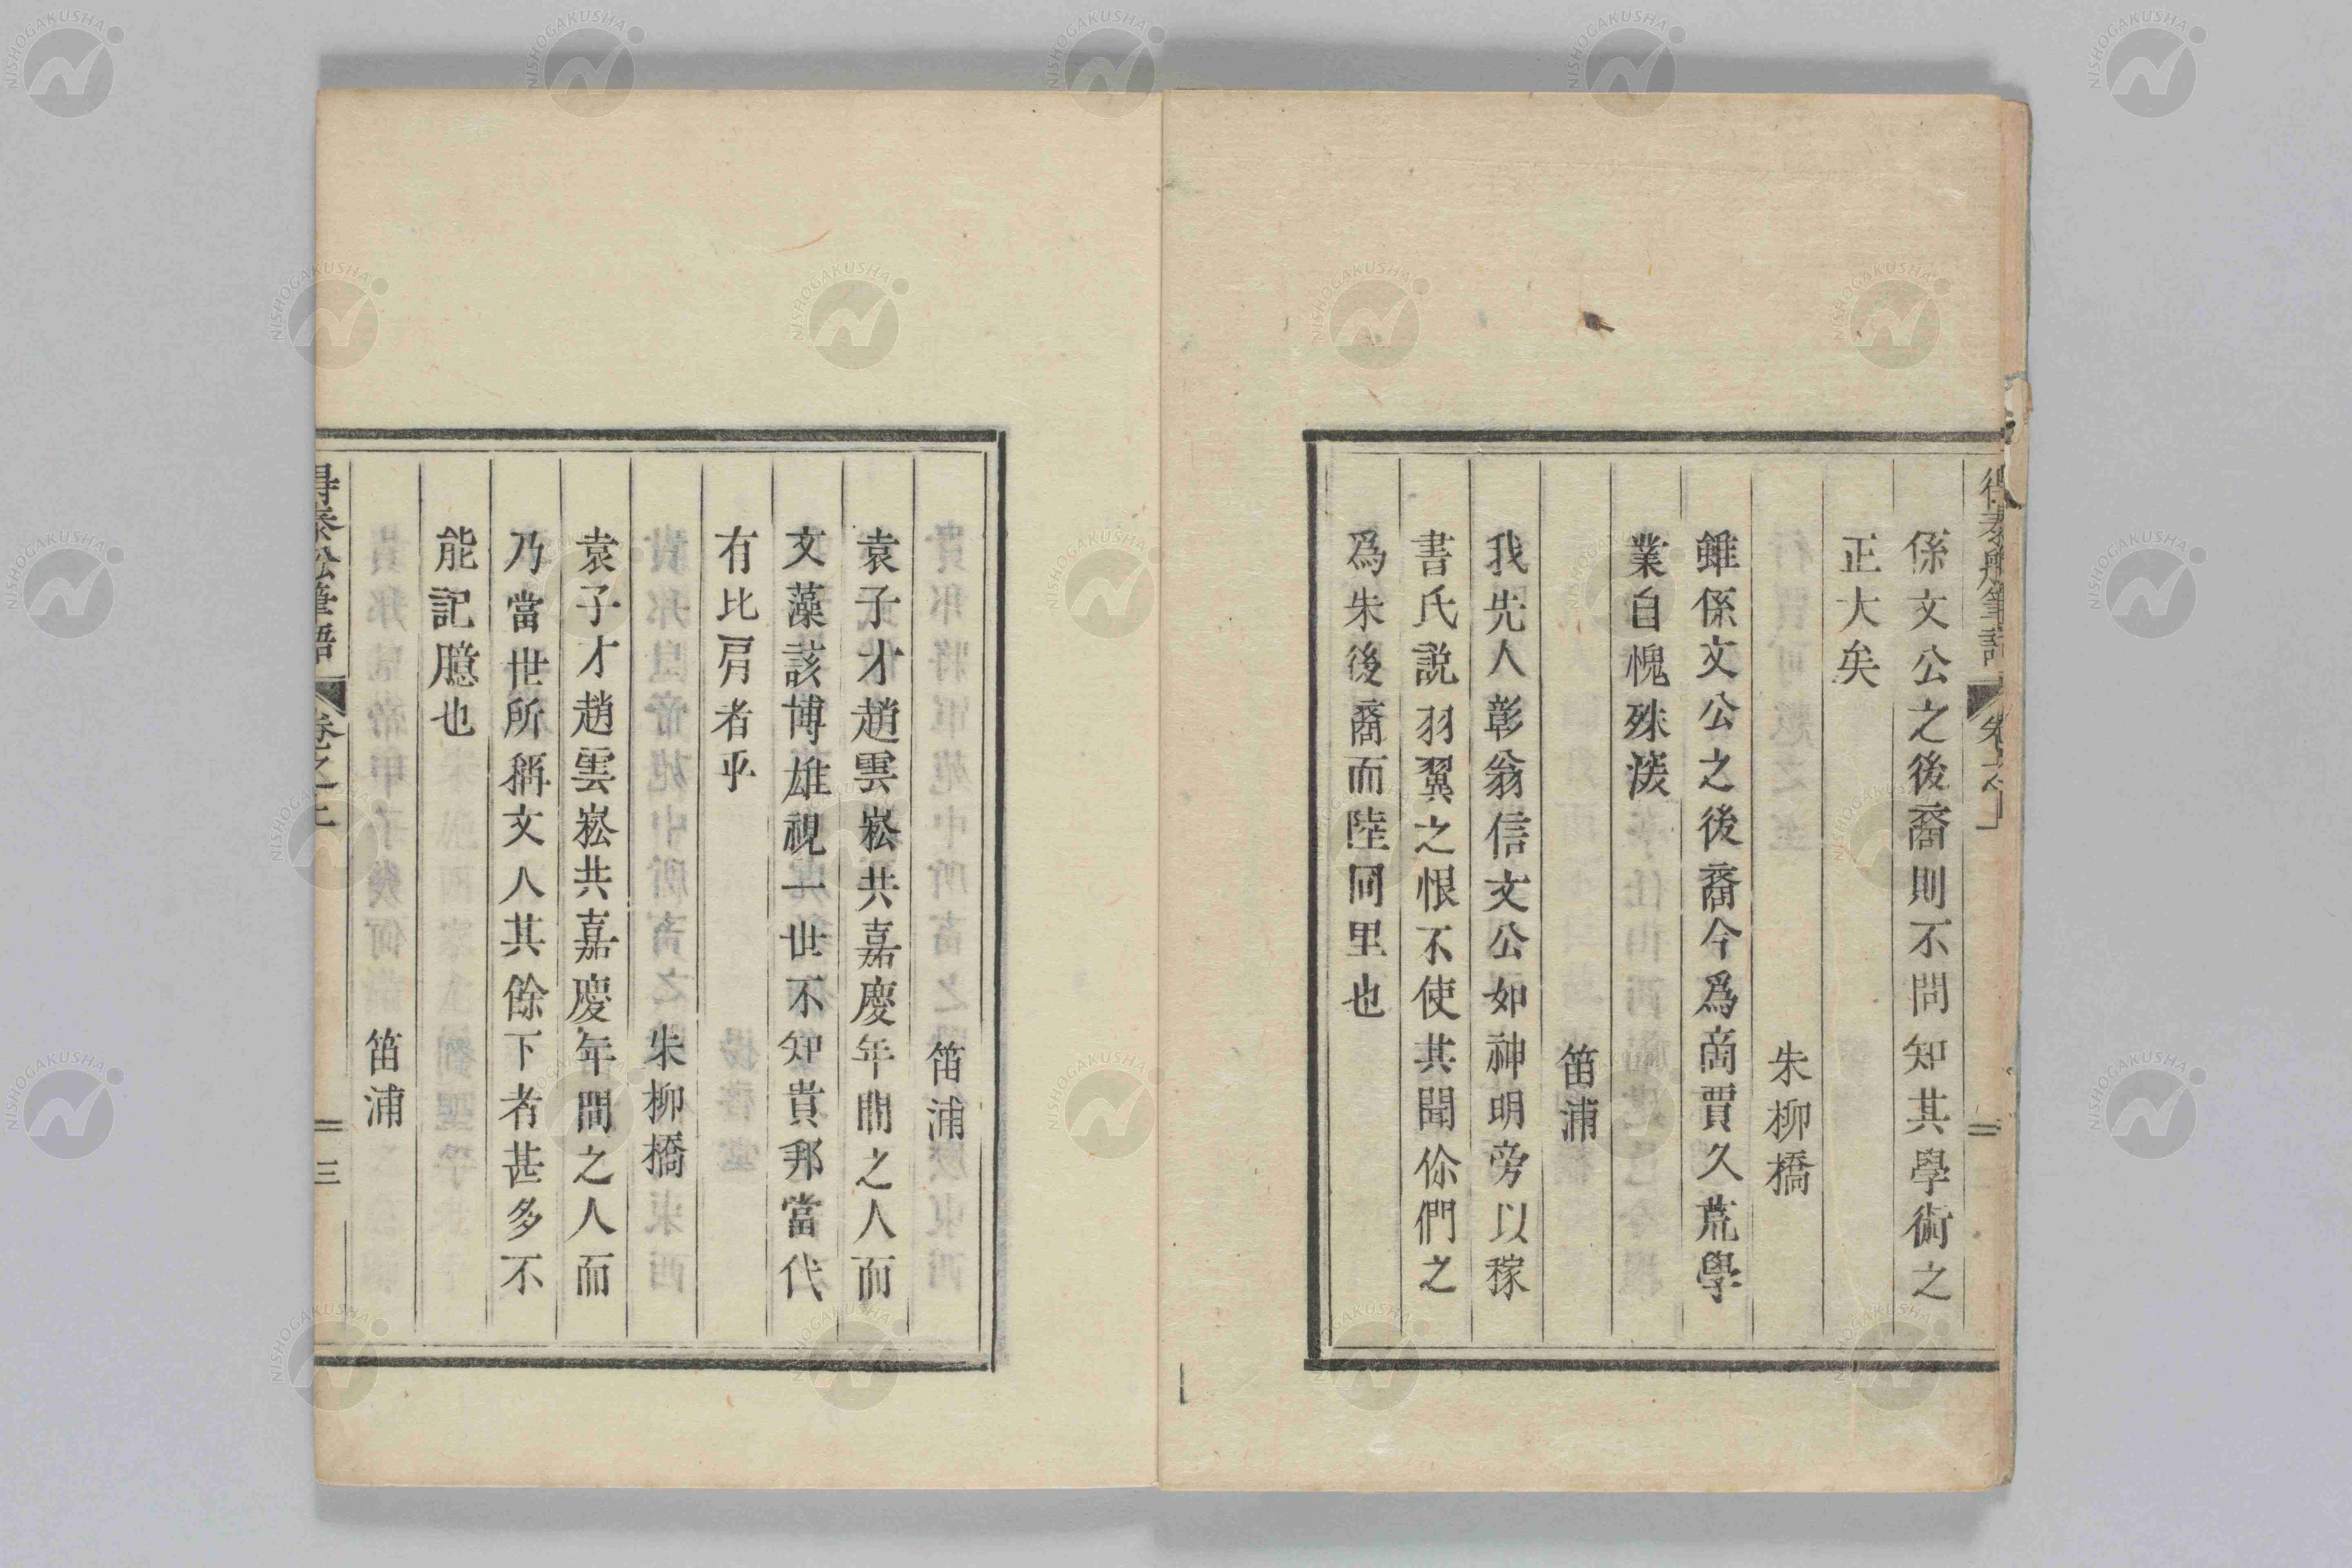 係文公之後裔則不問知其學術之
正大矣
朱柳橋
雖係文公之後裔今爲啇賈久荒學
業自愧殊淺
笛浦
我先人彰翁信文公如神明旁以稼
書氏説羽翼之恨不使其聞你們之
爲朱後裔而陸同里也
笛浦
袁子才趙雲崧共嘉慶年間之人而
文藻該博雄視一世不知貴邦當代
有比肩者乎
朱柳橋
袁子才趙雲崧共嘉慶年間之人而
乃當世所稱文人其餘下者甚多不
能記臆也
笛浦
得泰舩筆語
卷之上
三
NISHOGAKUSHA